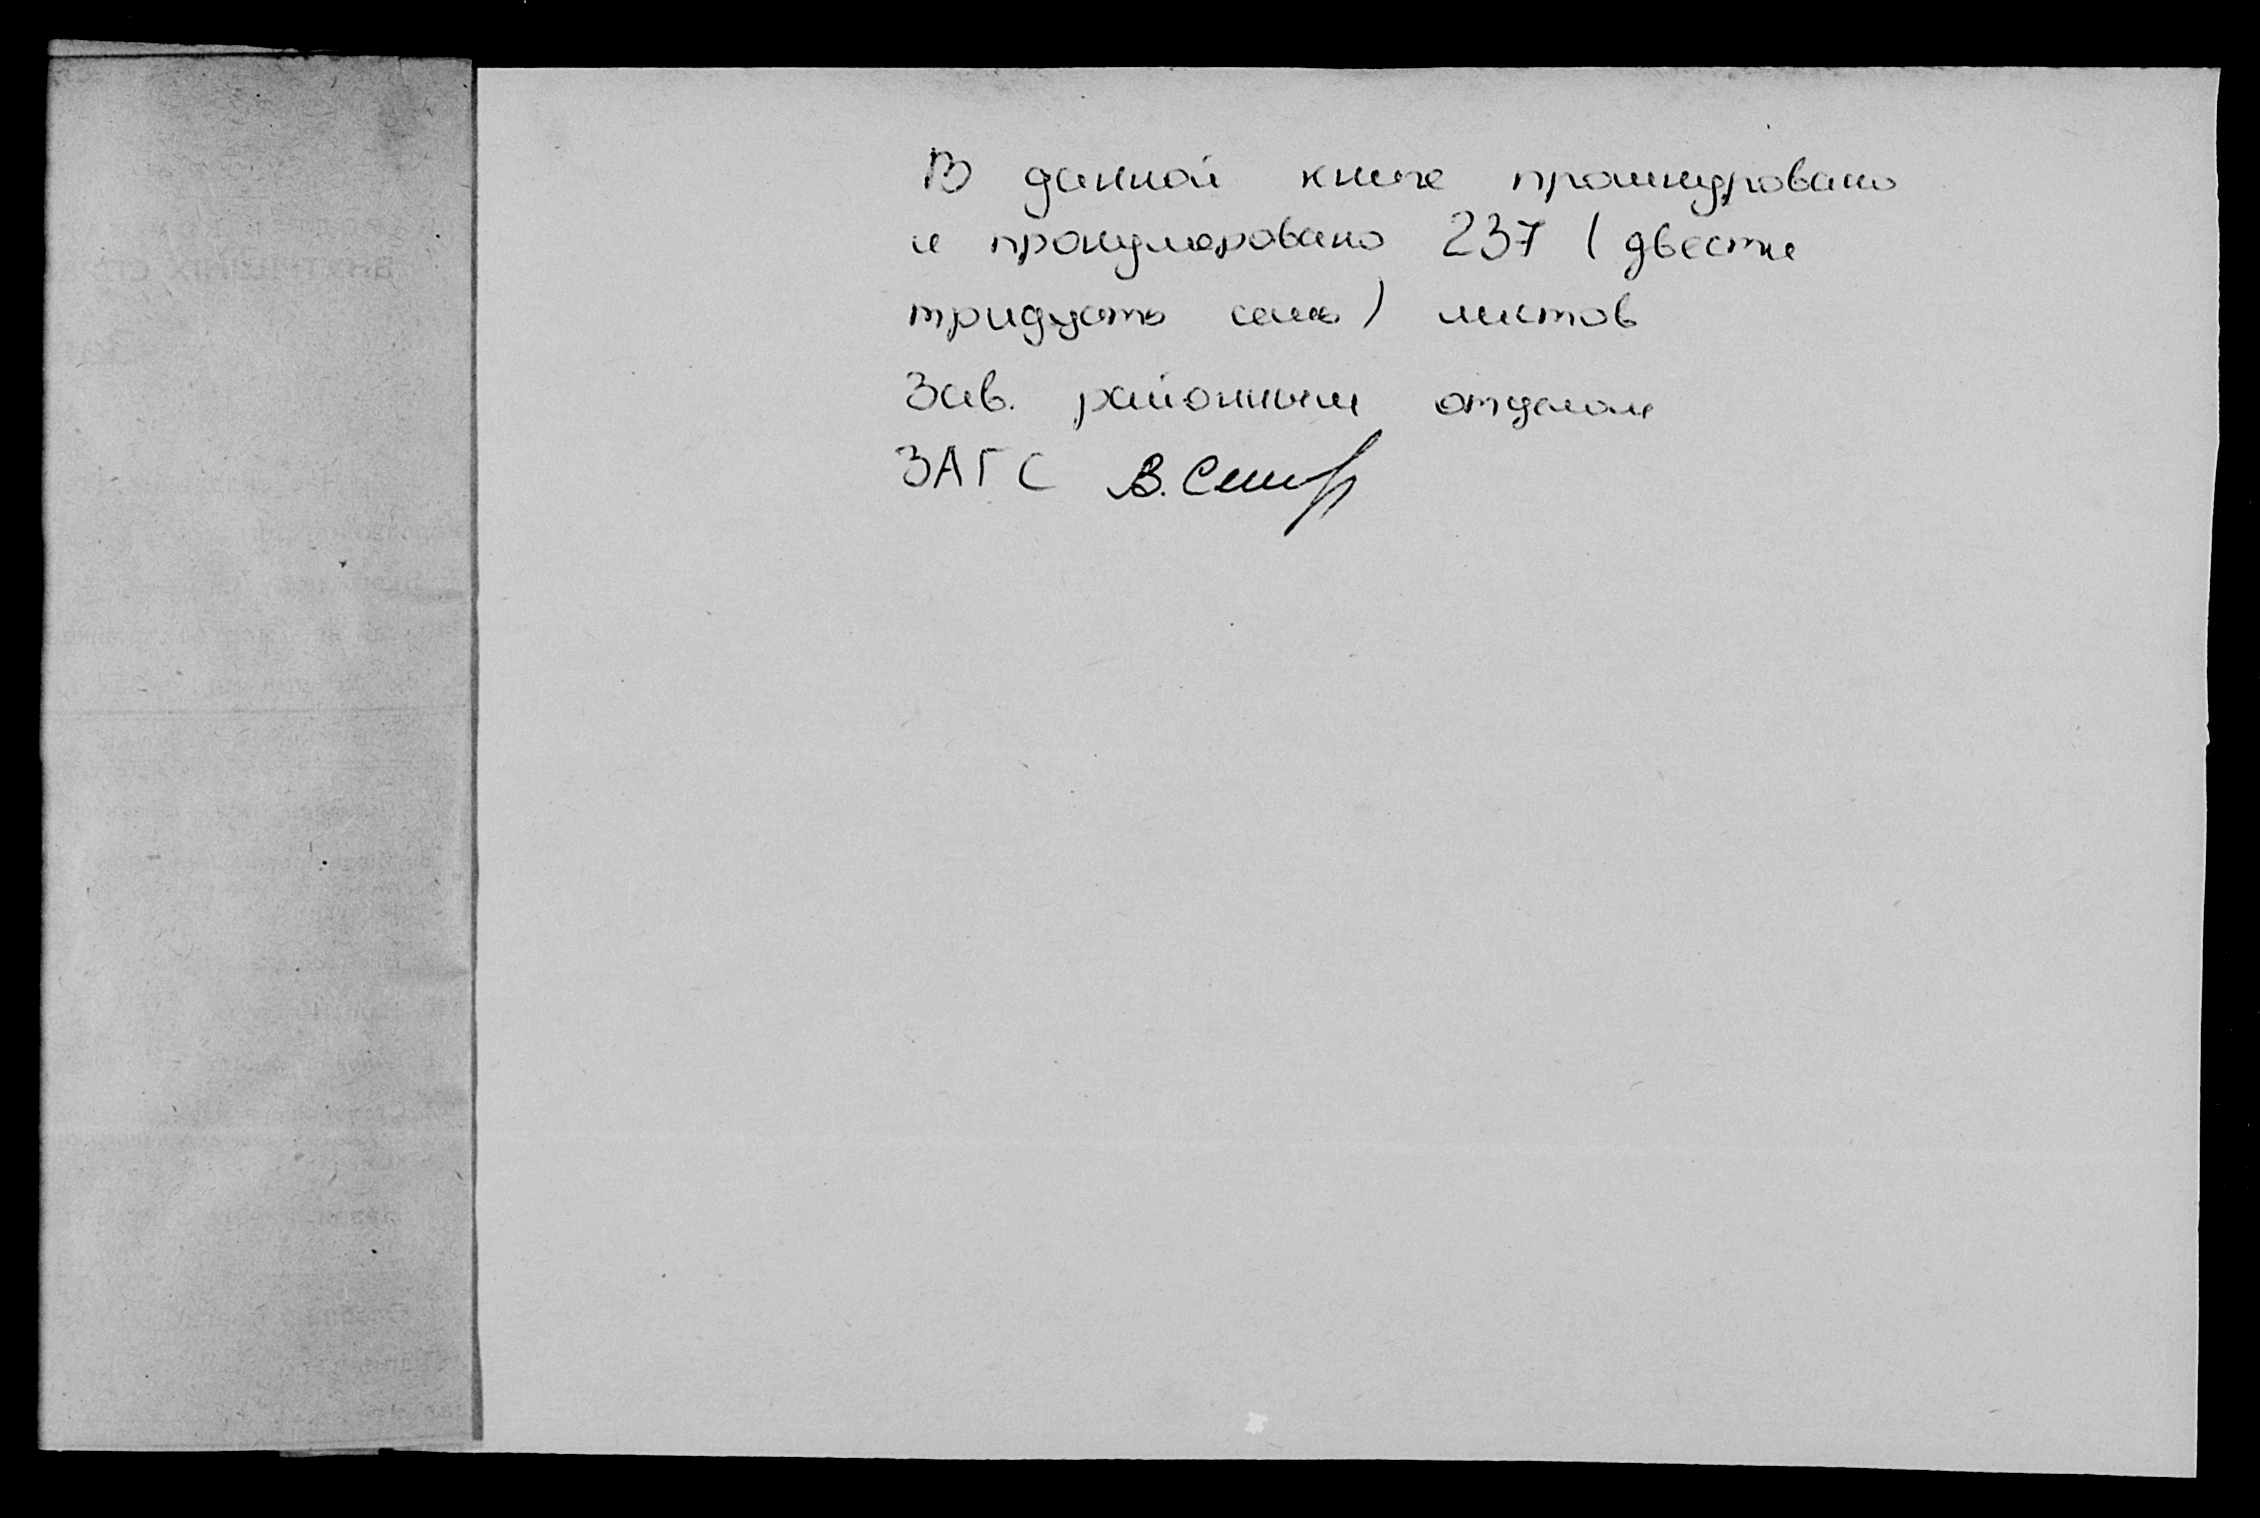 В данной книге прошнуровано
и пронумеровано 237 (двести
тридцать семь) листов
Зав. районным отделом
ЗАГС В.